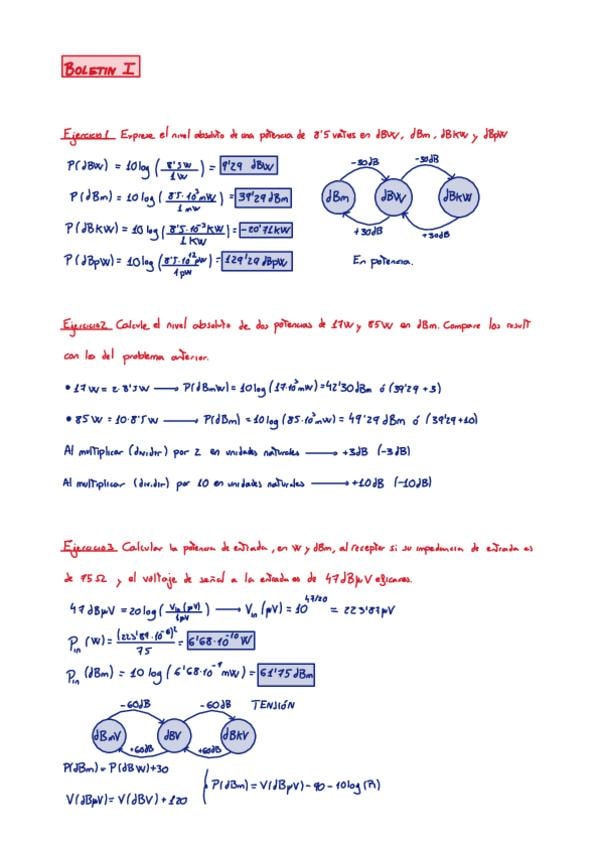 BOLETIN I
Ejercicio 1 Exprese el nivel absoluto de una potencia de 8'5 vatios en dBW, dBm, dBKW y dBpW
P(dBW) = 10 log (8'5W / 1W) = 9'29 dBW
P(dBm) = 10 log (8'5·10³ mW / 1 mW) = 39'29 dBm
P(dBKW) = 10 log (8'5·10⁻³ KW / 1 KW) = -20'71KW
P(dBpW) = 10 log (8'5·10¹² pW / 1 pW) = 129'29 dBpW
-30dB -30dB
dBm dBW dBKW
+30dB +30dB
En potencia.
Ejercicio 2 Calcule el nivel absoluto de dos potencias de 17W y 85W en dBm. Compare los result
con los del problema anterior.
• 17W = 2·8'5W → P(dBmW) = 10 log (17·10³ mW) = 42'30 dBm ó (39'29 + 3)
• 85W = 10·8'5W → P(dBm) = 10 log (85·10³ mW) = 49'29 dBm ó (39'29+10)
Al multiplicar (dividir) por 2 en unidades naturales → +3dB (-3dB)
Al multiplicar (dividir) por 10 en unidades naturales → +10dB (-10dB)
Ejercicio 3 Calcular la potencia de entrada, en W y dBm, al receptor si su impedancia de entrada es
de 75Ω y el voltaje de señal a la entrada es de 47dBμV eficaces.
47dBμV = 20 log (Vin (μV) / 1μV) → Vin (μV) = 10^47/20 = 223'87μV
Pin (W) = (223'87·10⁻⁶)² / 75 = 6'68·10⁻¹⁰ W
Pin (dBm) = 10 log (6'68·10⁻⁷ mW) = 61'75 dBm
-60dB -60dB TENSIÓN
dBmV dBV dBKV
+60dB +60dB
P(dBm) = P(dBW)+30
V(dBμV) = V(dBV) + 120
P(dBm) = V(dBμV) - 90 - 10 log (R)